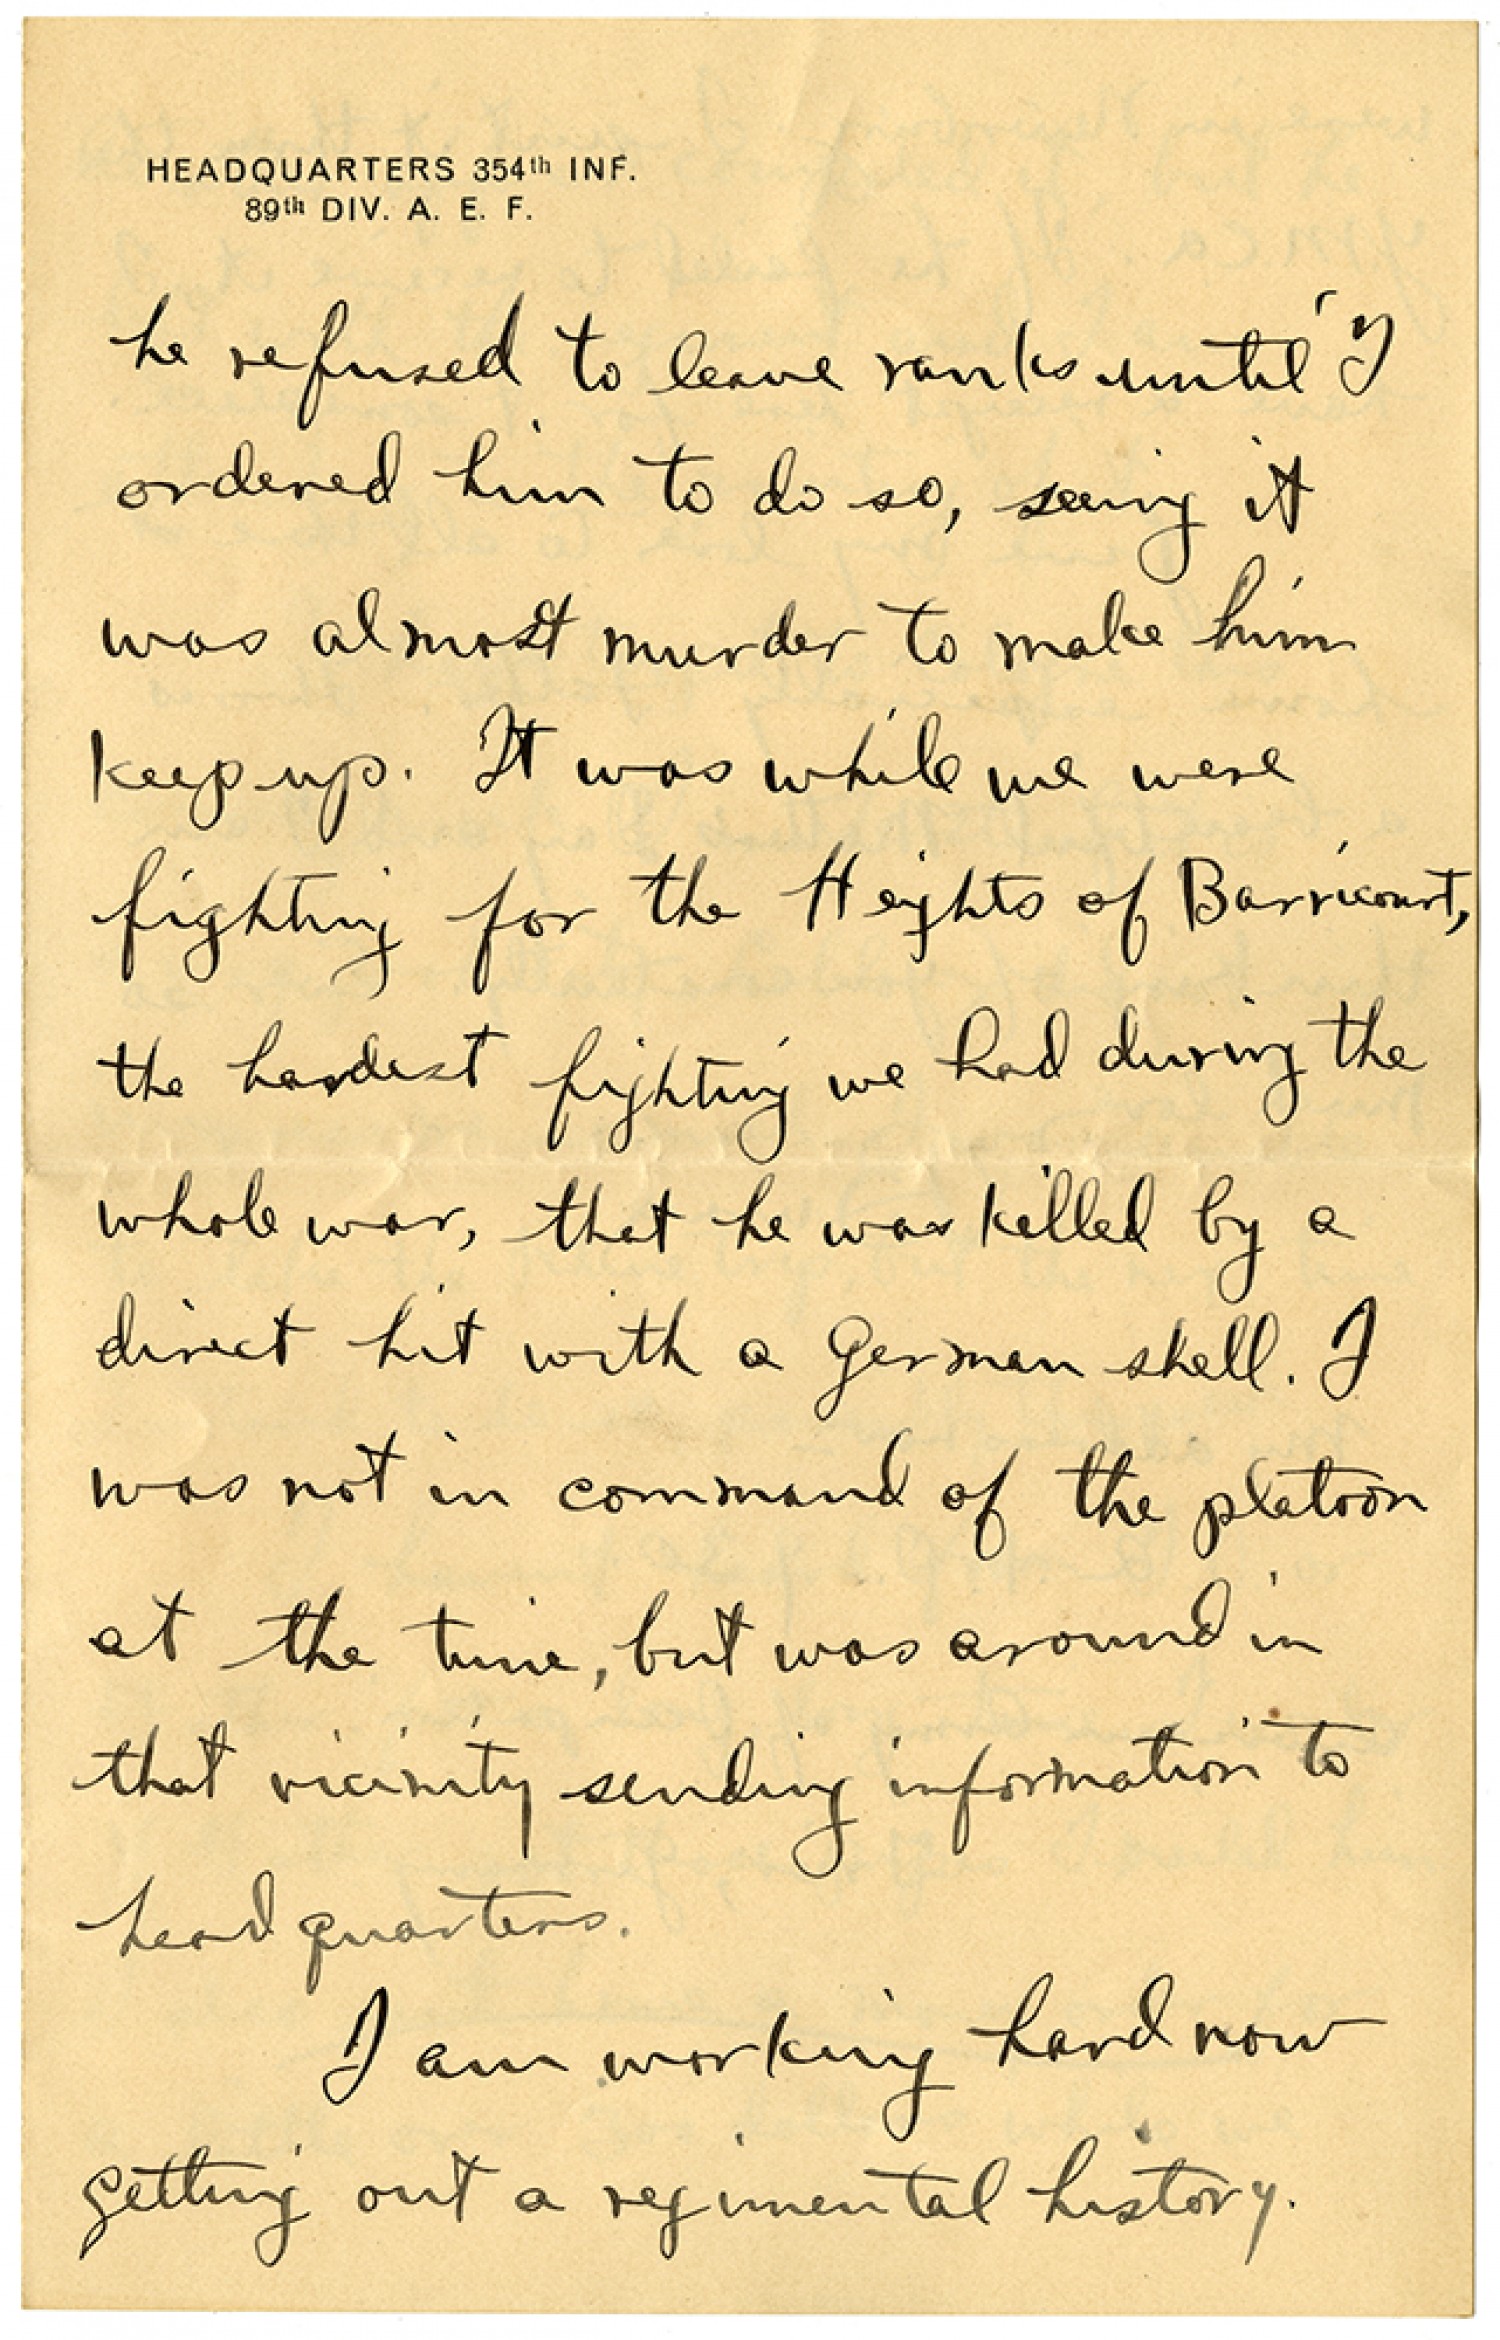 HEADQUARTERS 354th INF.
89th DIV. A. E. F.
he refused to leave ranks until I
ordered him to do so, seeing it
was almost murder to make him
keep up. It was while we were
fighting for the Heights of Barricourt,
the hardest fighting we had during the
whole war, that he was killed by a
direct hit with a German shell. I
was not in command of the platoon
at the time, but was around in
that vicinity sending information to
headquarters.
I am working hard now
getting out a regimental history.